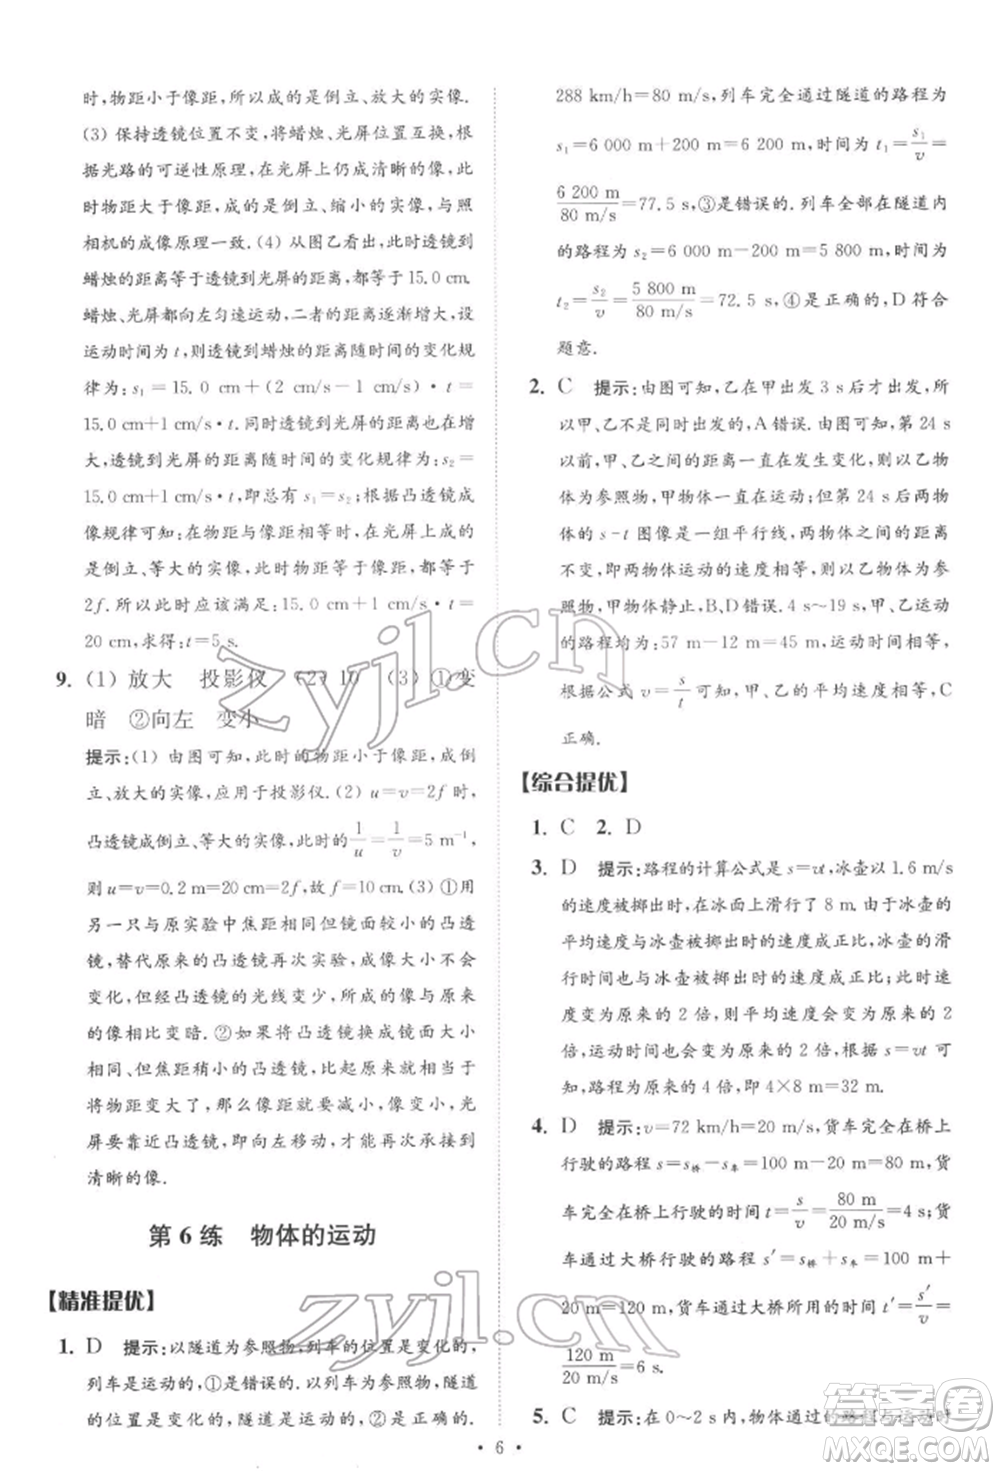 时,物距小于像距,所以成的是倒立、放大的实像.
(3) 保持透镜位置不变,将蜡烛、光屏位置互换,根
据光路的可逆性原理,在光屏上仍成清晰的像,此
时物距大于像距,成的是倒立、缩小的实像,与照
相机的成像原理一致.(4) 从图乙看出,此时透镜到
蜡烛的距离等于透镜到光屏的距离,大于 15.0 cm.
蜡烛、光屏都向左匀速运动,二者的距离逐渐增大,设
运动时间为 t,则透镜到蜡烛的距离随时间的变化规
律为:s₁=15.0 cm+(2 cm/s-1 cm/s)·t=
15.0 cm+1 cm/s·t.同时透镜到光屏的距离也在增
大,透镜到光屏的距离随时间的变化规律为:s₂=
15.0 cm+1 cm/s·t,即总有 s₁=s₂;根据凸透镜成
像规律可知:在物距与像距相等时,在光屏上成的
是倒立、等大的实像,此时物距与像距相等,等于
2f.所以此时应该满足:15.0 cm+1 cm/s·t=
20 cm,求得:t=5 s.
9. (1) 放大 投影仪 (2) 10 (3) ①变
暗 ②向左 变小
提示:(1) 由图可知,此时的物距小于像距,成倒
立、放大的实像,应用于投影仪.(2) u=v=2f 时,
凸透镜成倒立、等大的实像,此时 1/u=1/v=5 m⁻¹,
则 u=v=0.2 m=20 cm=2f,故 f=10 cm.(3) ①用
另一只与原实验中焦距相同但镜面较小的凸透
镜,替代原来的凸透镜再次实验,成像大小不会
变化,但经凸透镜的光线变少,所成的像与原来
的像相比变暗.②如果将凸透镜换成镜面大小
相同,但焦距稍小的凸透镜,再次实验,相当于
将物距变大了,那么像距就要减小,像变小,光
屏要靠近凸透镜,即向左移动,才可以再次得到
清晰的像.
第 6 练 物体的运动
【精准提优】
1. D 提示:以隧道为参照物,列车的位置是变化的,
列车是运动的,①是错误的.以列车为参照物,隧道
的位置是变化的,隧道是运动的,②是正确的.
288 km/h=80 m/s,列车完全通过隧道的路程为
s₁=6 000 m+200 m=6 200 m,时间为 t₁=s₁/v=
6 200 m/80 m/s=77.5 s,③是错误的.列车全部在隧道内
的路程为 s₂=6 000 m-200 m=5 800 m,时间为
t₂=s₂/v=5 800 m/80 m/s=72.5 s,④是正确的,D 符合
题意.
2. C 提示:由图可知,乙在甲出发 3 s后才出发,所
以甲、乙不是同时出发的,A 错误.由图可知,第 24 s
以前,甲、乙之间的距离一直在发生变化,所以以乙物
体为参照物,甲物体一直在运动;但第 24 s 后两物体
的 s-t 图像是一组平行线,两物体之间的距离
不变,即两物体运动的速度相等,此时以乙为参
照物,甲物体静止,B、D 错误.4 s~19 s,甲、乙运动的
路程均为:57 m-12 m=45 m,运动时间相等,
根据公式 v=s/t 可知,甲、乙的平均速度相等,C
正确.
【综合提优】
1. C 2. D
3. D 提示:路程的计算公式是 s=vt,冰壶以 1.6 m/s
的速度被掷出时,在冰面上滑行了 8 m.由于冰壶的
平均速度与冰壶被掷出时的速度成正比,冰壶的滑
行时间也与冰壶被掷出时的速度成正比;掷出时速
度变为原来的 2 倍,则平均速度会变为原来的 2
倍,运动时间也会变为原来的 2 倍,根据 s=vt 可
知,路程为原来的 4 倍,即 4×8 m=32 m.
4. D 提示:v=72 km/h=20 m/s,货车完全在桥上
行驶的路程 s=s桥-s车=100 m-20 m=80 m,货
车完全在桥上行驶的时间 t=s/v=80 m/20 m/s=4 s;
货车通过大桥行驶的路程 s′=s桥+s车=100 m+
20 m=120 m,货车通过大桥所用的时间 t′=s′/v=
120 m/20 m/s=6 s.
5. C 提示:在 0~2 s内,物体通过的路程与运动时
· 6 ·
zyjl.cn
zyjl.cn
答案圈
MXQE.COM